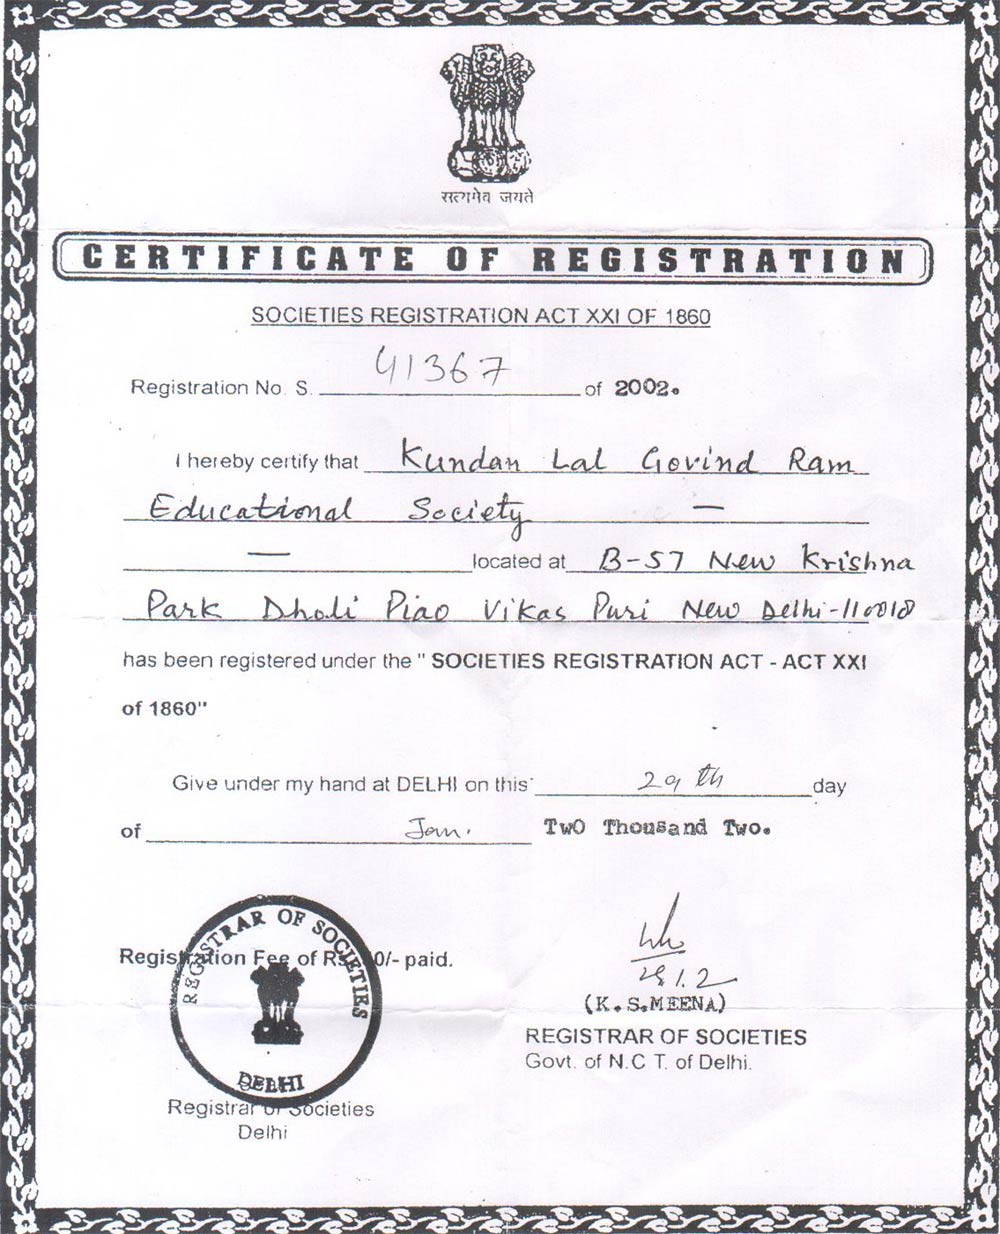 सत्यमेव जयते
CERTIFICATE OF REGISTRATION
SOCIETIES REGISTRATION ACT XXI OF 1860
Registration No. S. 41367 of 2002.
I hereby certify that Kundan Lal Govind Ram
Educational Society —
— located at B-57 New Krishna
Park Dholi Piao Vikas Puri New Delhi-110018
has been registered under the " SOCIETIES REGISTRATION ACT - ACT XXI
of 1860"
Give under my hand at DELHI on this 29th day
of Jan. TwO Thousand Two.
Registration Fee of 0/- paid.
REGISTRAR OF SOCIETIES
DELHI
Registrar of Societies
Delhi
(K.S.MEENA)
REGISTRAR OF SOCIETIES
Govt. of N.C T. of Delhi.